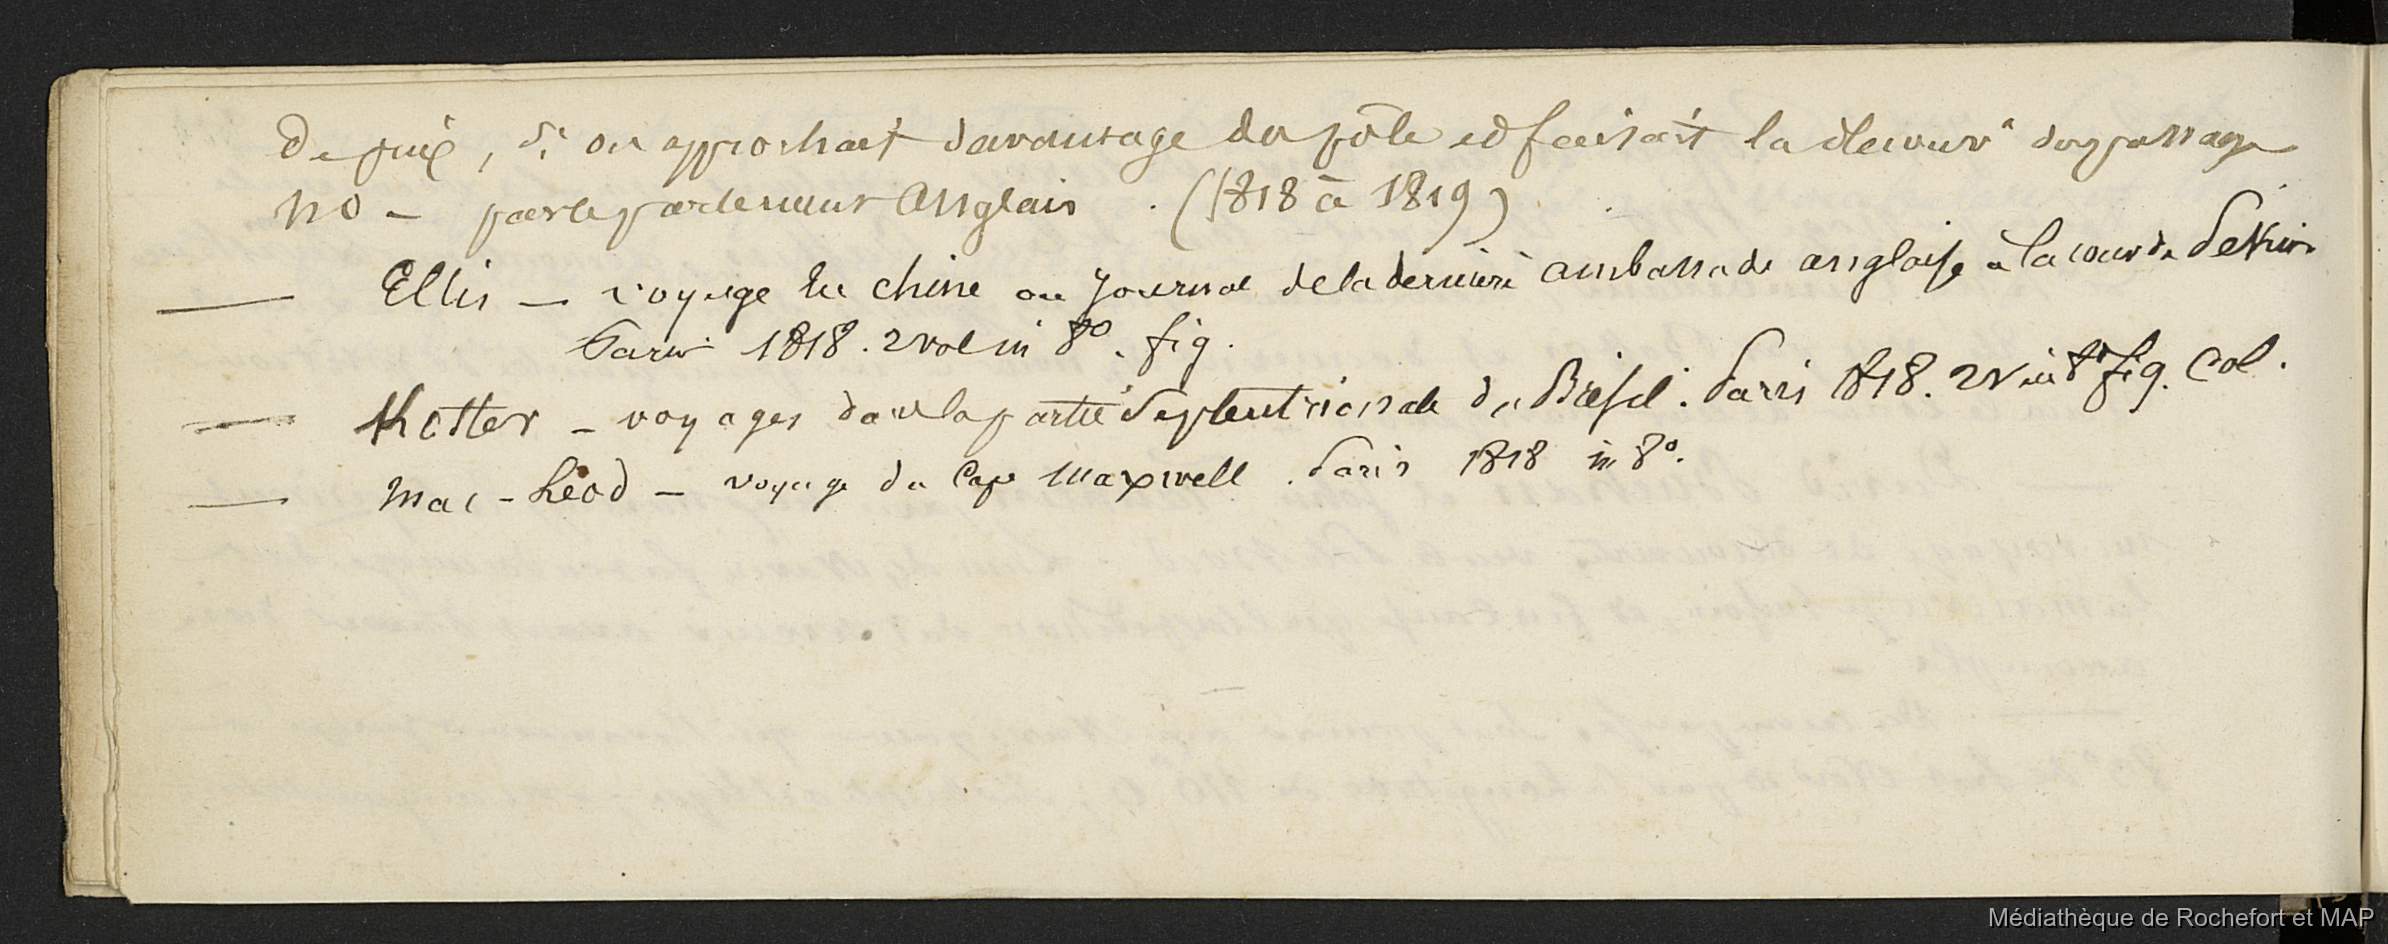 De prix, si on approchait davantage du pôle et faisait la decouv.e du passage
NO — par le parlement Anglais . (1818 à 1819)
— Ellis — voyage en chine ou Journal de la derniere ambassade anglaise à la cour de Pekin
Paris 1818. 2 vol in 8°. fig.
— Koster — voyages dans la partie Septentrionale du Brésil. Paris 1818. 2 v in 8° fig. col.
— Mac-Léod — voyage du Cap.e Maxwell. Paris 1818 in 8°.
Médiathèque de Rochefort et MAP